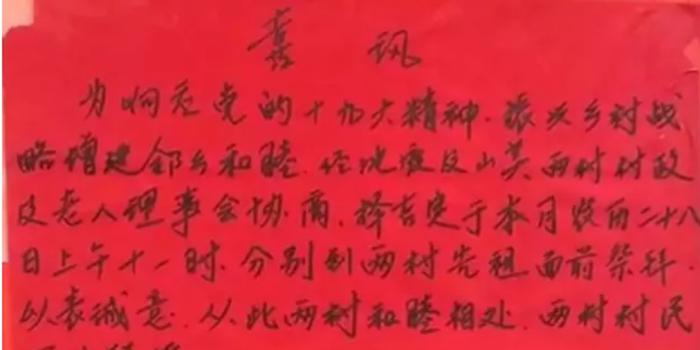 喜 讯
为响应党的十九大精神.振兴乡村战
略增建邻乡和睦.经 及山美两村村政
及老人理事会协商.择吉定于本月农历二十八
日上午十一时.分别到两村先祖面前祭拜.
以表诚意.从此两村和睦相处.两村村民